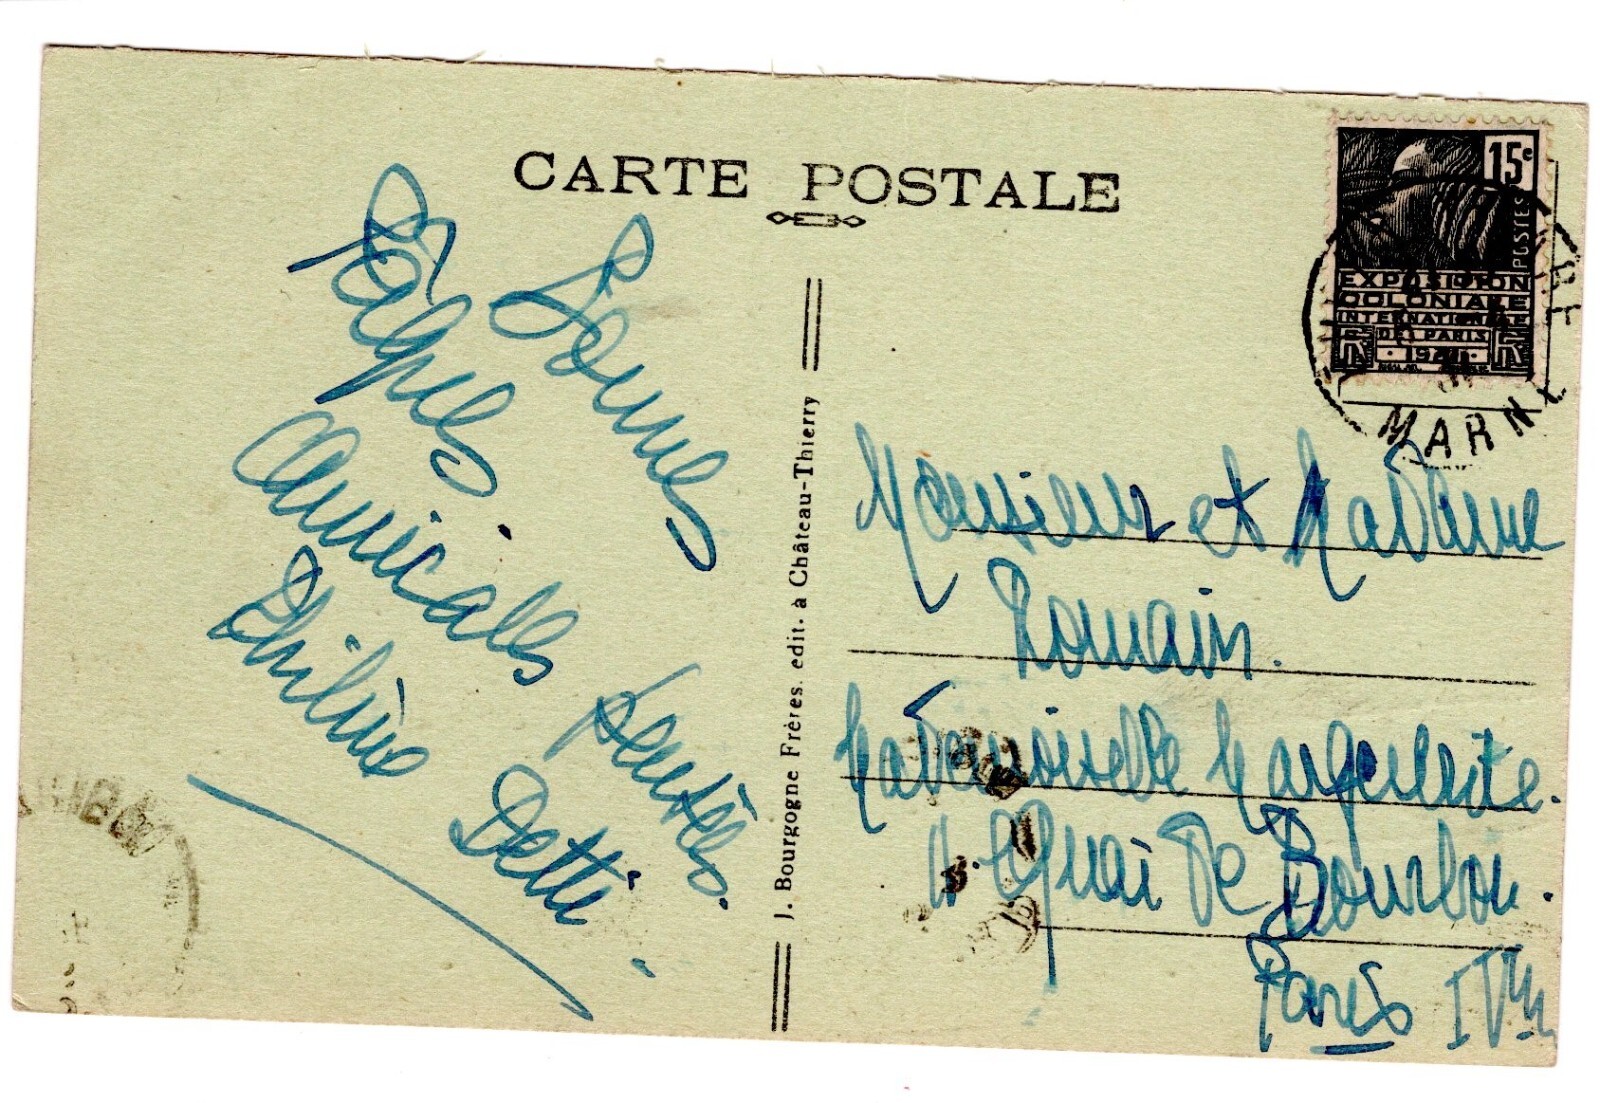 CARTE POSTALE
Bonnes
Pâques
Amicales pensées.
Philine Detti
J. Bourgogne Frères, edit. à Château-Thierry
15c
POSTES
EXPOSITION
COLONIALE
INTERNATIONALE
DE PARIS
1931
MARNE
Monsieur et Madame
Romain.
Mademoiselle Marguerite.
Quai de Bourbon.
Paris IVme